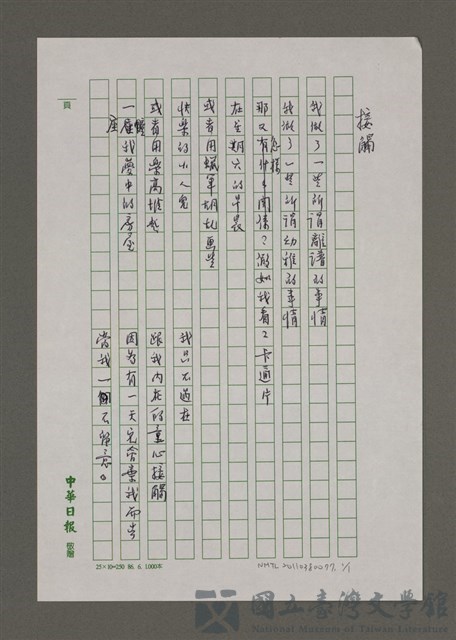 接觸
我做了一些所謂離譜的事情
我做了一些所謂幼稚的事情
那又有什麼關係?譬如我看了卡通片
怎樣
在星期六的早晨
或者用蠟筆胡亂畫些
快樂的小人兒
或者用樂高堆起
一座我夢中的房屋
我只不過在
跟我內在的童心接觸
因為有一天它會棄我而去
當我一個不留意。
頁
中華日報
敬贈
25×10=250 86.6.1000本
NMTL 20110380097, 1/1
國立臺灣文學館
National Museum of Taiwan Literature